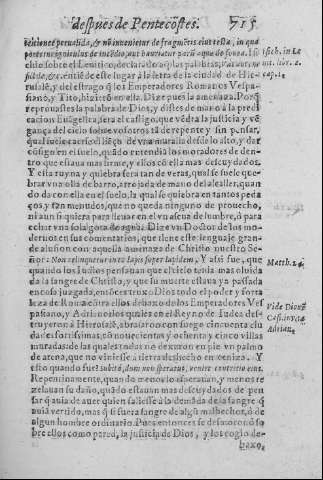 despues de Pentecostes. 715
tritione peruálida, & nō inuenietur de fragmētis eius testa, in qua
portetur igniculus de incēdio, aut hauriatur parū aquæ de fouea. Isi-
chio sobre el Leuitico, declarādo aqllas palabras,
Isich. in Le
uit. libr. 2.
cap.
entiēde este lugar à la letra de la ciudad de Hie-
rusalē, y del estrago q̄ los Emperadores Romanos Vespa-
siano, y Tito, hizierō en ella. Dize pues la amenaza. Porq̄
reprouastes la palabra de Dios, y distes de mano à la predi-
cacion Euāgelica, sera el castigo, que vēdra la justicia y vē-
gança del cielo sobre vosotros tā derepente y sin pensar,
qual suele caer de vna muralla desde lo alto, y dar
cōsigo en el suelo, quādo entendiā los moradores de den-
tro que estaua mas firme, y ellos cō ella mas descuydados.
Y esta ruyna y quiebra sera tan de veras, qual se suele que-
brar vna olla de barro, arrojada de mano del alcaller, quan-
do da con ella en el suelo, la qual se quiebra en tantos peda-
ços, y tan menudos, que no queda ninguno de prouecho,
ni aun si quiera para lleuar en el vn ascua de lumbre, ò para
echar vna sola gota de agua. Dize vn Doctor de los mo-
dernos en sus comentarios, que tiene este lenguaje gran-
de alusion con aquella amenaza de Christo nuestro Se-
ñor: Non relinquetur into lapis super lapidem. Y assi fue, que
Matth. 24.
quando los Iudios pensauan que el cielo tenia mas oluida
da la sangre de Christo, y que su muerte estaua ya passada
en cosa juzgada, entōces truxo Dios todo el poder y forta
leza de Roma cōtra ellos debaxo de los Emperadores Ves
pasiano, y Adriano: los quales en el Reyno de Iudea des-
Vide Dionē
Cassium, in
Adriano.
truyeron à Hierusalē, abrasaron con fuego cincuenta ciu
dades fortissimas, con nouecientas y ochenta y cinco villas
muradas: de las quales todas no dexaron en pie vn palmo
de atena, que no viniesse à tierra deshecho en ceniza. Y
esto quando fue? subitò, dum non speratur, veniet contritio eius.
Repentinamente, quando menos lo esperauan, y menos re
zelauan su daño, quādo estauan mas descuydados de pen-
sar q̄ auia de auer quien saliesse à la demāda de la sangre q̄
auiā vertido, mas q̄ si fuera sangre de algū malhechor, ò de
algun hombre ordinario. Pues entonces se desmoronō so
bre ellos como pared, la justicia de Dios, y los cogio de-
baxo,